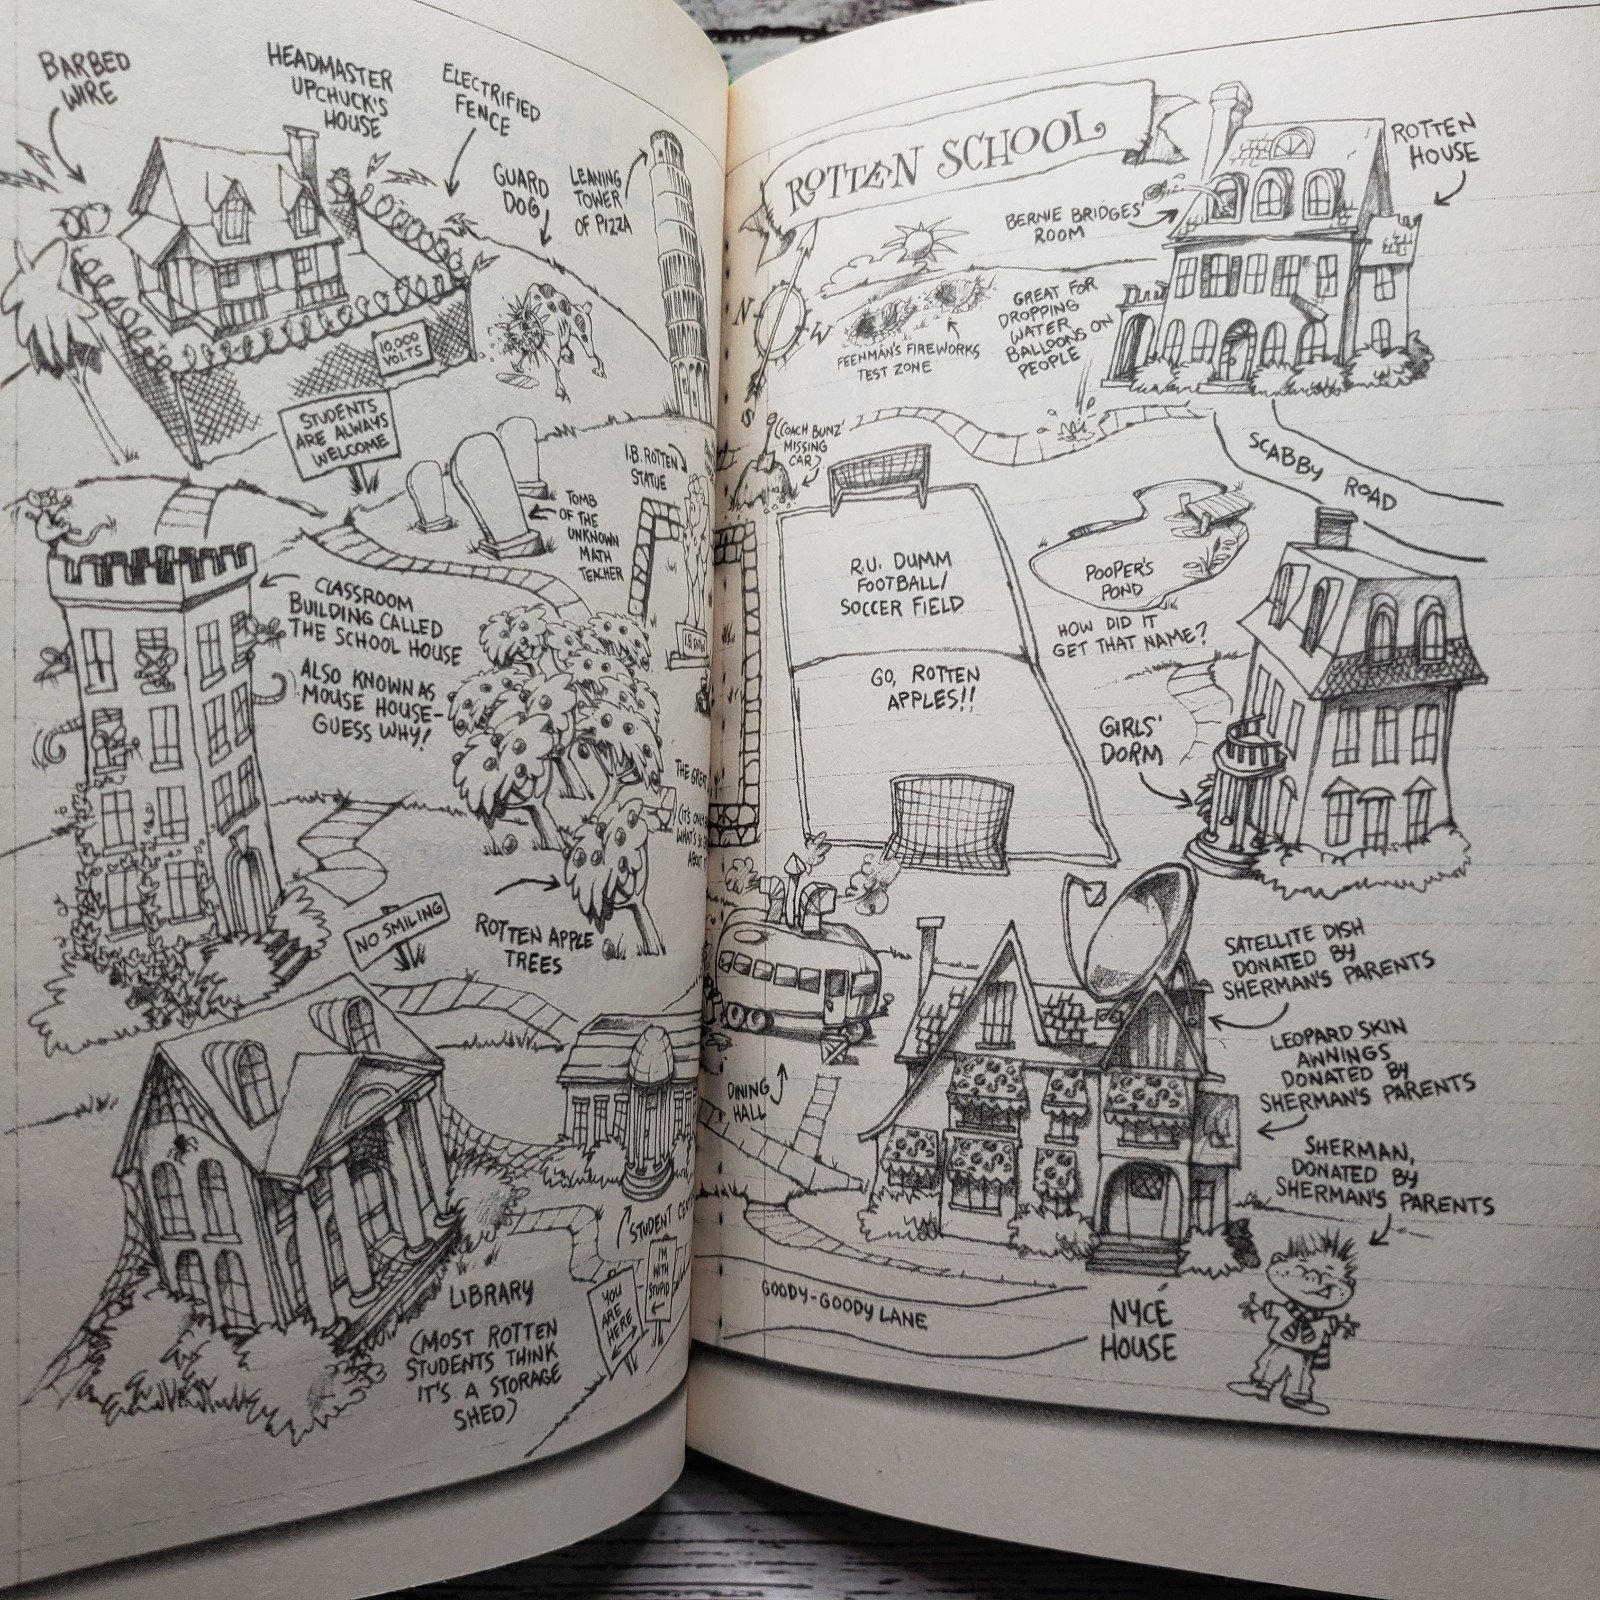 BARBED
WIRE
HEADMASTER
UPCHUCK'S
HOUSE
ELECTRIFIED
FENCE
GUARD
DOG
LEANING
TOWER
OF PIZZA
10,000
VOLTS
STUDENTS
ARE ALWAYS
WELCOME
I.B. ROTTEN
STATUE
TOMB
OF THE
UNKNOWN
MATH
TEACHER
CLASSROOM
BUILDING CALLED
THE SCHOOL HOUSE
ALSO KNOWN AS
MOUSE HOUSE-
GUESS WHY!
THE GREAT
WHAT'S
NO SMILING
ROTTEN APPLE
TREES
STUDENT
I'M
WITH
STUPID
YOU
ARE
HERE
LIBRARY
(MOST ROTTEN
STUDENTS THINK
IT'S A STORAGE
SHED)
ROTTEN SCHOOL
ROTTEN
HOUSE
BERNIE BRIDGES'
ROOM
N
W
S
FEENMAN'S FIREWORKS
TEST ZONE
GREAT FOR
DROPPING
WATER
BALLOONS ON
PEOPLE
(COACH BUNZ'
MISSING
CAR)
SCABBY ROAD
R.U. DUMM
FOOTBALL/
SOCCER FIELD
GO, ROTTEN
APPLES!!
POOPER'S
POND
HOW DID IT
GET THAT NAME?
GIRLS'
DORM
SATELLITE DISH
DONATED BY
SHERMAN'S PARENTS
LEOPARD SKIN
AWNINGS
DONATED BY
SHERMAN'S PARENTS
SHERMAN,
DONATED BY
SHERMAN'S PARENTS
DINING
HALL
GOODY-GOODY LANE
NYCE
HOUSE